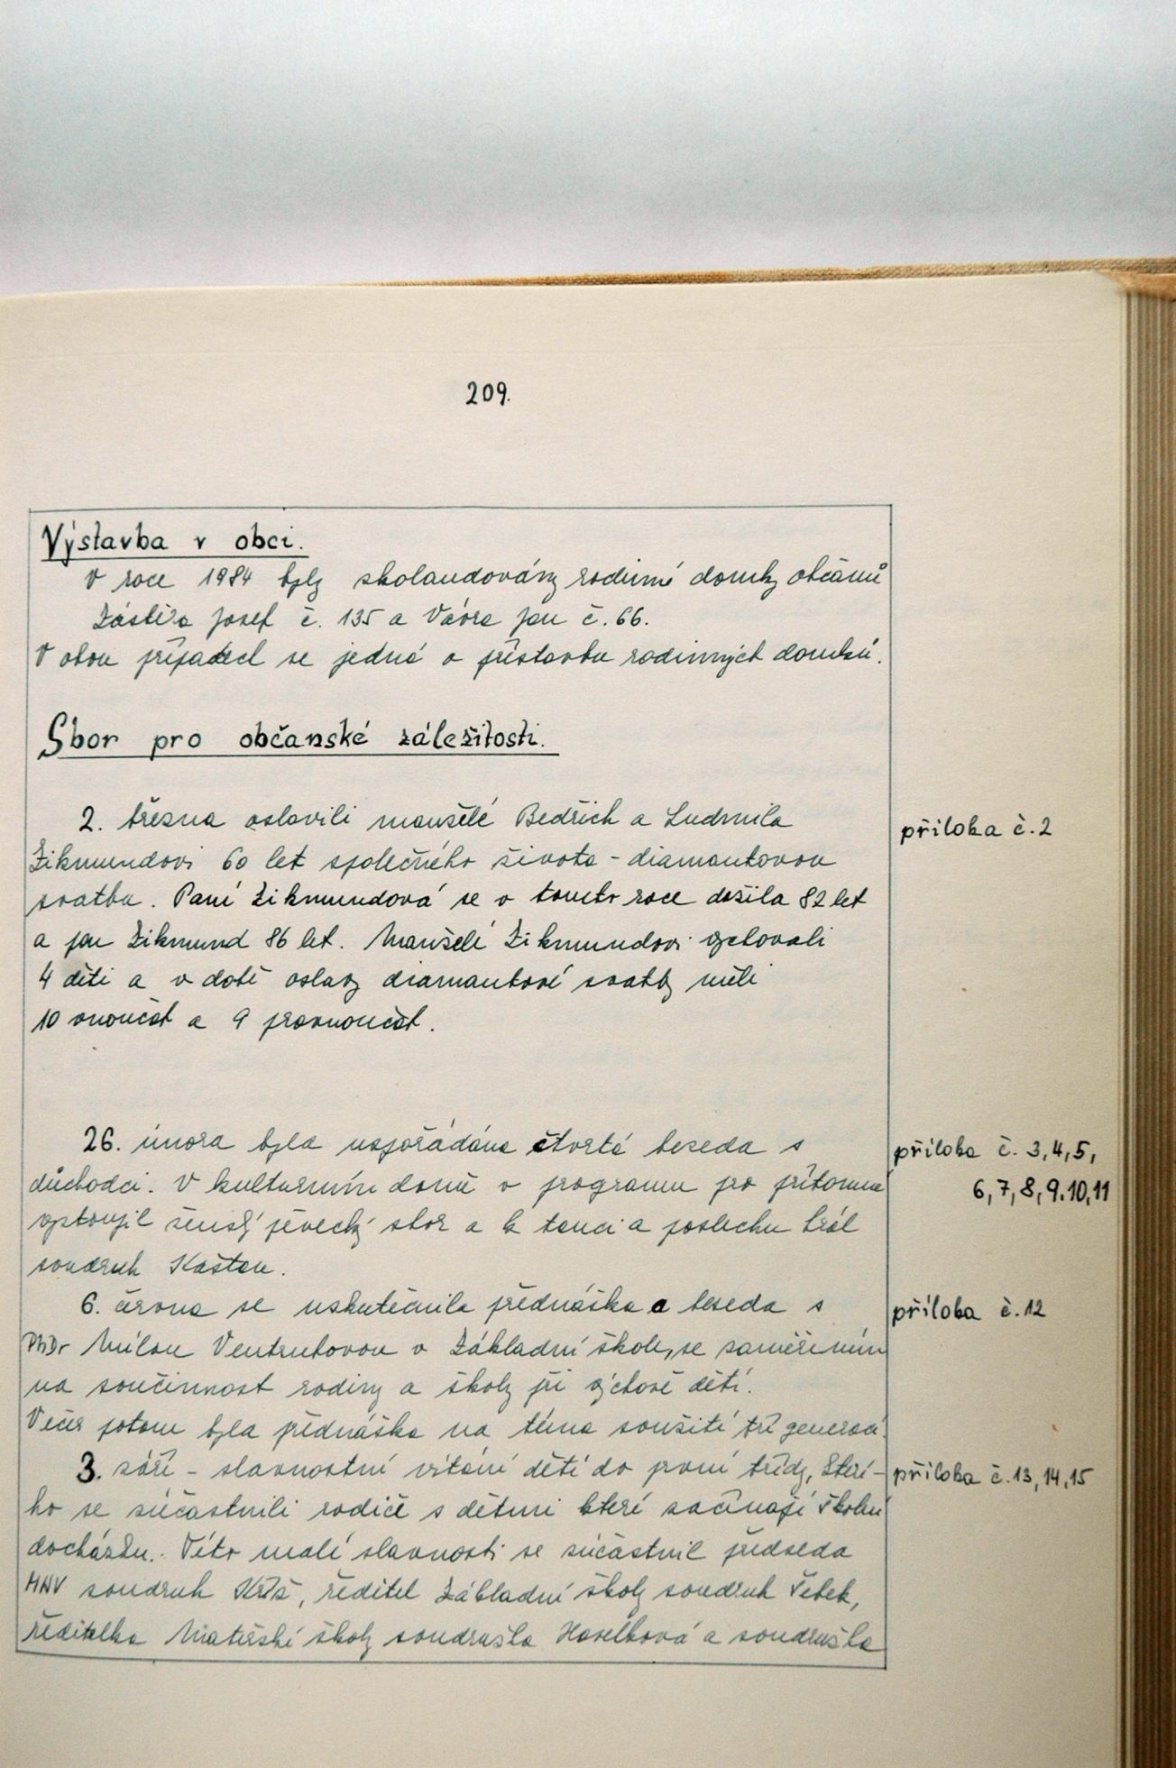 209.
Výstavba v obci.
V roce 1984 byly skolaudovány rodinné domky občanů
Josef č. 135 a Vávra Jan č. 66.
V obou případech se jedná o přístavbu rodinných domků.
Sbor pro občanské záležitosti.
2. března oslavili manželé Bedřich a Ludmila
příloha č.2
Zikmundovi 60 let společného života - diamantovou
svatbu. Paní Zikmundová se v tomto roce dožila 82 let
a pan Zikmund 86 let. Manželé Zikmundovi vychovali
4 děti a v době oslavy diamantové svatby měli
10 vnoučat a 9 pravnoučat.
26. února byla uspořádána čtvrtá beseda s
příloha č. 3,4,5,
důchodci. V kulturním domě v programu pro přítomné
6,7,8,9.10,11
vystoupil ženský pěvecký sbor a k tanci a poslechu hrál
soudruh Kaštan.
6. června se uskutečnila přednáška a beseda s
příloha č.12
PhDr Milou v Základní škole, se zaměřením
na součinnost rodiny a školy při výchově dětí.
Večer potom byla přednáška na téma soužití tří generací.
3. září - slavnostní vítání dětí do první třídy, které-
příloha č.13,14,15
ho se zúčastnili rodiče s dětmi které začínají školní
docházku. Této malé slavnosti se zúčastnil předseda
MNV soudruh Kříž, ředitel Základní školy soudruh
ředitelka Mateřské školy soudružka Havelková a soudružka